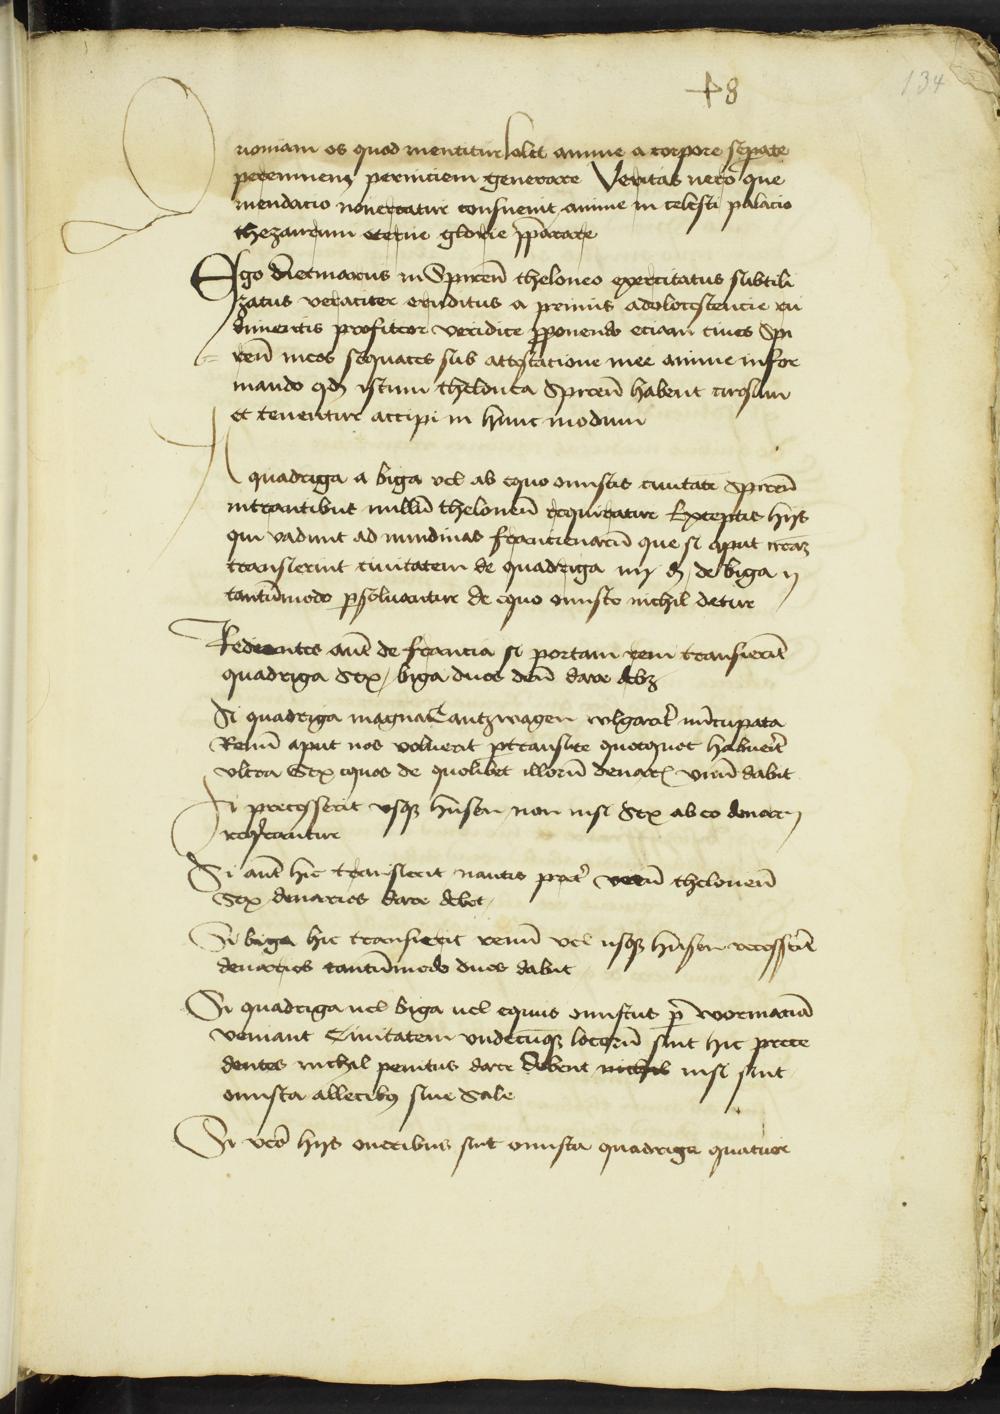 48
134
Quoniam os quod mentitur solet anime a corpore sepate
perennem perniciem generare Veritas vero que
mendacio novercatur consuevit anime in celesti palacio
thezaurum eterne glorie ppārare
Ego Dietmarus in Spireñ theloneo exercitatus subtili
zatus veraciter eruditus a primis adolocescencie ru
dimentis profiteor veridice pponendo eciam cives Spi
reñ meos sequaces sub attestatione mee anime infor
mando qd istum thelonea Spireñ habent cursum
et tenentur accipi in hunc modum
A quadriga a biga vel ab equo onustis civitate Spireñ
intrantibus nullū theloneū requiratur Exceptis hijs
qui vadunt ad nundinas que si aput
transierint civitatem de quadriga iiij d de biga ij
tantūmodo psolvantur de equo onusto nichil detur
Redeuntes aut de francia si portam rem transierit
quadriga sex biga duos deñ dare debz
Si quadriga magna Lantzwagen vulgarit nūcupata
Renum aput nos voluerit ptransire quotquot habuerit
ultra sex equos de quolibet illorū denar unū dabit
Si precesserit usq husen non nisi sex ab eo denarij
requirantur
Si aut hic transierit navis pret verū theloneū
Sex denarios dare debet
Si biga hic transierit renum vel usq husen recesserit
denarios tantūmodo duos dabit
Si quadriga vel biga vel equus onustus p wormaciā
veniant Civitatem undecūq locorū sint hic prece
dentes nichil penitus dare debent nichil nisi sint
onusta allecibus sive Sale
Si vero hijs oneribus sint onusta quadriga quatuor